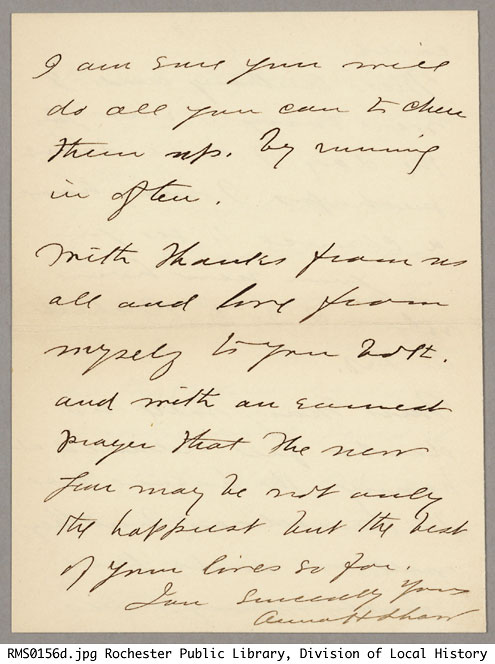 I am sure you will
do all you can to cheer
them up. by running
in often.
With thanks from us
all and love from
myself to you both.
and with an earnest
prayer that the new
Year may be not only
the happiest but the best
of your lives so far.
I am Sincerely Yours
Anna H Shaw
RMS0156d.jpg Rochester Public Library, Division of Local History